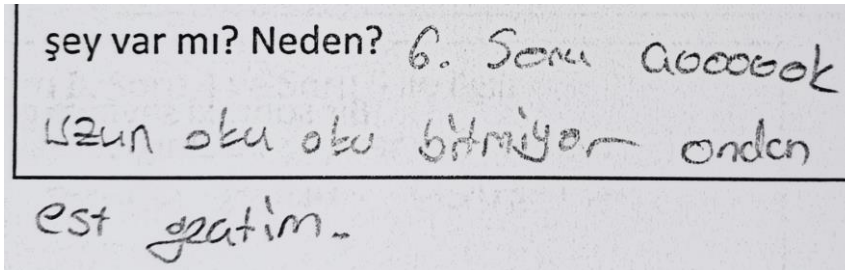 şey var mı? Neden? 6. Soru çooooook
uzun oku oku bitmiyor ondan
est